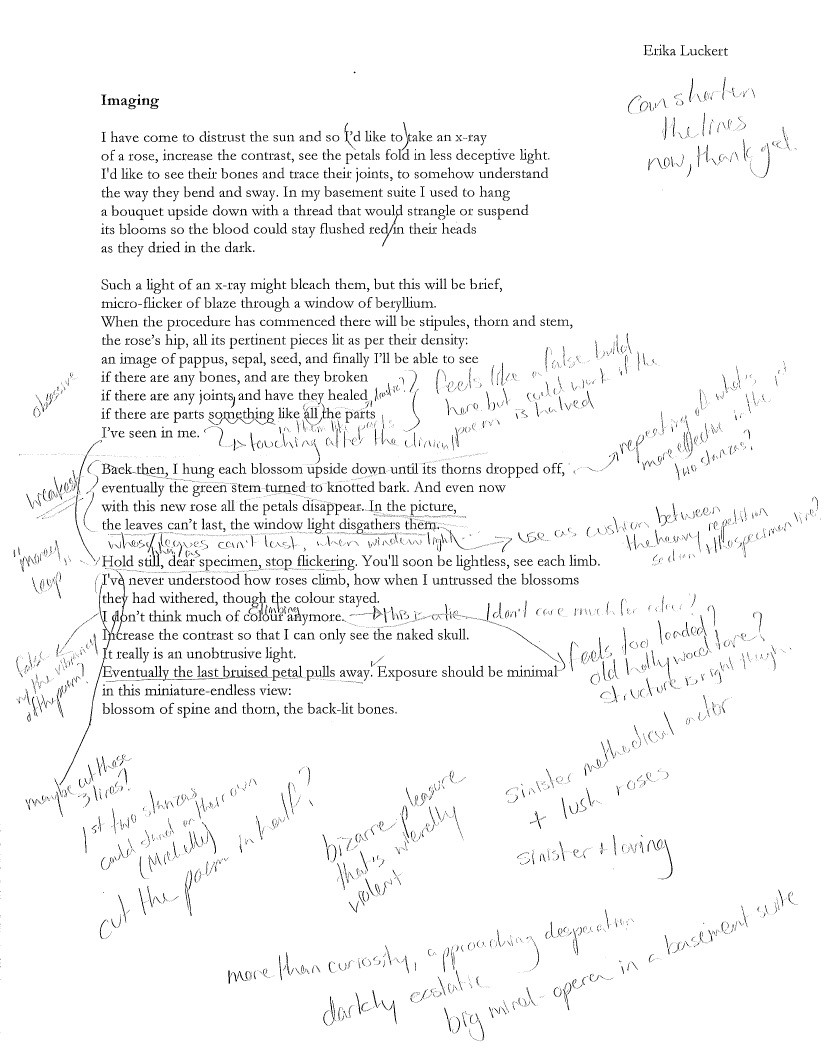 Erika Luckert
Can shorten
the lines
now, thank god.
Imaging
I have come to distrust the sun and so I'd like to take an x-ray
of a rose, increase the contrast, see the petals fold in less deceptive light.
I'd like to see their bones and trace their joints, to somehow understand
the way they bend and sway. In my basement suite I used to hang
a bouquet upside down with a thread that would strangle or suspend
its blooms so the blood could stay flushed red/in their heads
as they dried in the dark.
Such a light of an x-ray might bleach them, but this will be brief,
micro-flicker of blaze through a window of beryllium.
When the procedure has commenced there will be stipules, thorn and stem,
the rose's hip, all its pertinent pieces lit as per their density:
an image of pappus, sepal, seed, and finally I'll be able to see
if there are any bones, and are they broken
if there are any joints, and have they healed,
if there are parts something like all the parts
I've seen in me.
obsessive
feels like a false build
here but could work if the
poem is halved
touching after the clinical
repeating of what's
more effective in the 1st
two stanzas?
Back then, I hung each blossom upside down until its thorns dropped off,
eventually the green stem turned to knotted bark. And even now
with this new rose all the petals disappear. In the picture,
the leaves can't last, the window light disgathers them.
weakest
whose leaves can't last, when window light
use as cushion between
the heavy repetition
Hold still, dear specimen, stop flickering. You'll soon be lightless, see each limb.
I've never understood how roses climb, how when I untrussed the blossoms
they had withered, though the colour stayed.
I don't think much of colour anymore.
Increase the contrast so that I can only see the naked skull.
It really is an unobtrusive light.
Eventually the last bruised petal pulls away. Exposure should be minimal
in this miniature-endless view:
blossom of spine and thorn, the back-lit bones.
climbing
I don't care much for colour?
feels too loaded?
old hollywood tone?
structure is right though
false
w/ the vibrancy
of the poem?
maybe cut these
3 lines?
1st two stanzas
could stand on their own
(Michelle)
cut the poem in half?
bizarre pleasure
that's weirdly
violent
sinister methodical actor
+ lush roses
sinister + loving
more than curiosity, approaching desperation
darkly ecstatic
big mini-opera in a basement suite